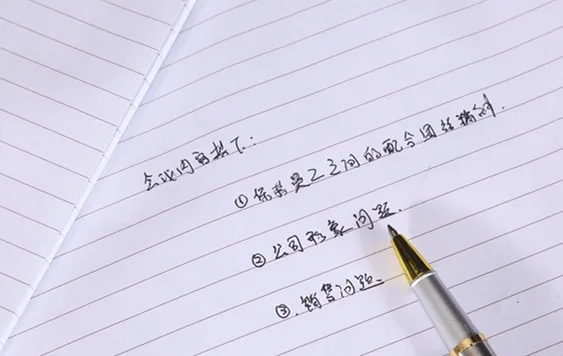 会议内容如下:
① 保持员工之间的配合团结精神.
② 公司形象问题.
③. 销售问题.